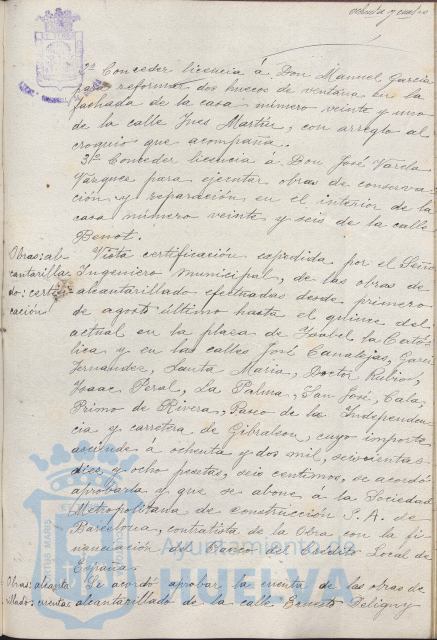 ochenta y cuatro
2º Conceder licencia á Don Manuel García
para reformar dos huecos de ventana en la
fachada de la casa número veinte y uno
de la calle Ines Martín, con arreglo al
croquis que acompaña.
3º Conceder licencia á Don José Varela
Vazquez para ejecutar obras de conserva-
ción y reparación en el interior de la
casa número veinte y seis de la calle
Benot.
Obras: al-
cantarilla-
do: certifi-
cación
Vista certificación expedida por el Señor
Ingeniero Municipal, de las obras de
alcantarillado efectuadas desde primero
de agosto último hasta el quince del
actual en la plaza de Isabel la Cató-
lica y en las calles José Canalejas, Garci
Fernandez, Santa Maria, Doctor Rubio,
Isaac Peral, La Palma, San José, Cala,
Primo de Rivera, Paseo de la Independen-
cia y carretera de Gibraleon, cuyo importe
asciende á ochenta y dos mil, seiscientas
diez y ocho pesetas, seis centimos, se acordó
aprobarla y que se abone a la Sociedad
Metropolitana de construcción S. A. de
Barcelona, contratista de la Obra con la fi-
nanciación del Banco de Crédito Local de
España.
Obras: alcanta-
rillado: cuenta
Se acordó aprobar la cuenta de las obras de
alcantarillado de la calle Ernesto Deligny
Ayuntamiento de
HUELVA